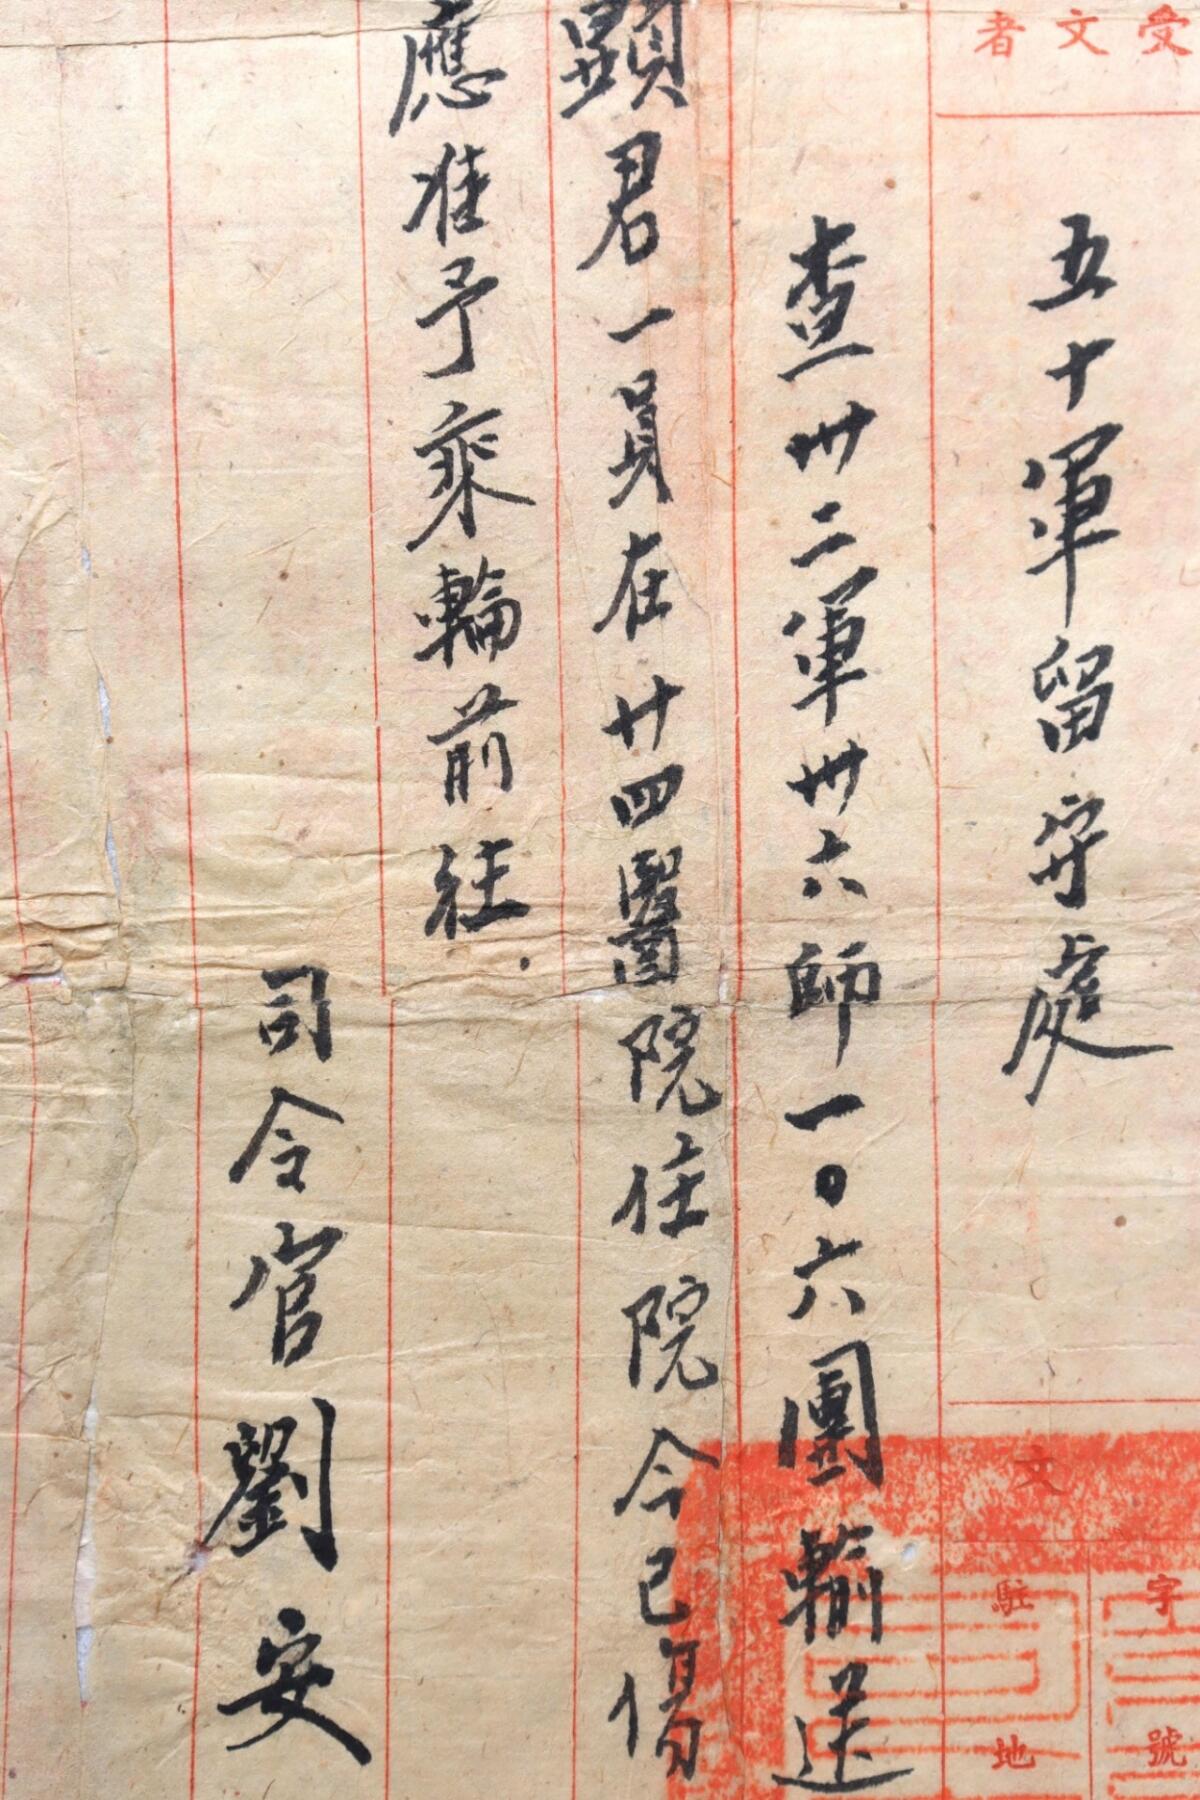 受文者
五十軍留守處
文
字號
駐地
查卅二軍卅六師一〇六團輸送
顯君一員在廿四醫院住院今已傷
應准予乘輪前往
司令官劉安